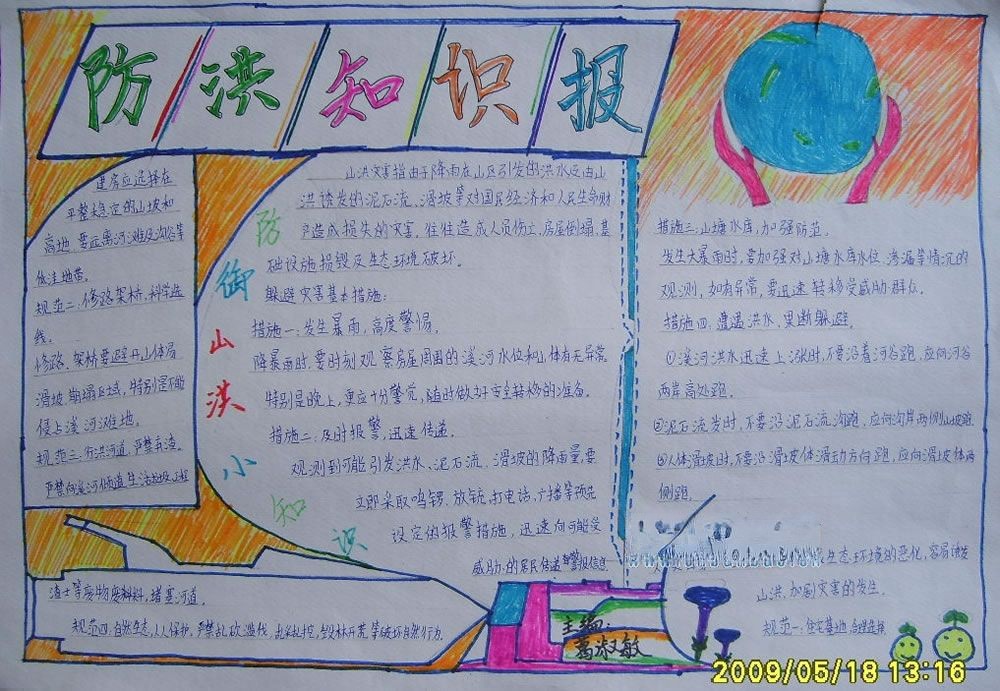 防洪知识报
防御山洪小知识
山洪灾害指由于降雨在山区引发的洪水及由山
洪诱发的泥石流、滑坡等对国民经济和人民生命财
产造成损失的灾害，往往造成人员伤亡，房屋倒塌，基
础设施损毁及生态环境破坏。
躲避灾害基本措施：
措施一：发生暴雨，高度警惕。
降暴雨时，要时刻观察房屋周围的溪河水位和山体有无异常。
特别是晚上，更应十分警觉，随时做好安全转移的准备。
措施二：及时报警，迅速传递。
观测到可能引发洪水、泥石流、滑坡的降雨量，要
立即采取鸣锣、放铳，打电话、广播等预先
设定的报警措施，迅速向可能受
威胁的居民传递警报信息
措施三：山塘水库，加强防范。
发生大暴雨时，要加强对山塘水库水位、渗漏等情况的
观测，如有异常，要迅速转移受威胁群众。
措施四：遭遇洪水，果断躲避。
①溪河洪水迅速上涨时，不要沿着河谷跑，应向河谷
两岸高处跑。
②泥石流发时，不要沿泥石流沟跑，应向沟岸两侧山坡跑
③人体滑坡时，不要沿滑坡体滑动方向跑，应向滑坡体两
侧跑。
生态环境的恶化，容易诱发
山洪、加剧灾害的发生。
规范一：住宅基地，合理选择
建房应选择在
平整稳定的山坡和
高地，要远离河滩及沟谷等
低洼地带。
规范二：修路架桥，科学选
线。
修路、架桥要避开山体易
滑坡、崩塌区域，特别是不能
侵占溪河滩地。
规范三：行洪河道，严禁弃渣。
严禁向溪河倾道生活垃圾、工程
渣土等废物废料料，堵塞河道。
规范四：自然生态，人人保护，严禁乱砍滥伐，乱采乱挖，毁林开荒等破坏自然行为
主编：
葛淑敏
2009/05/18 13:16